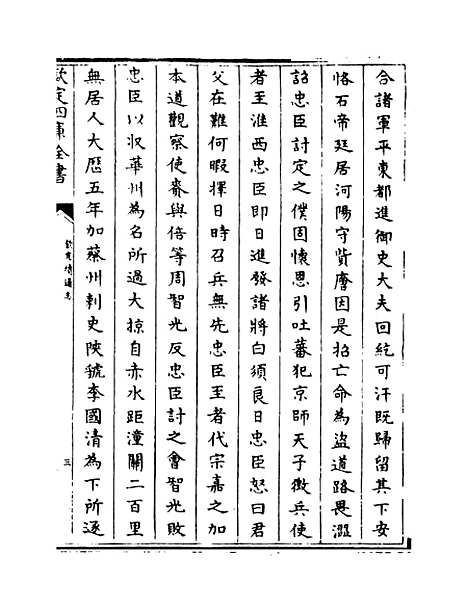 合諸軍平東都進御史大夫回紇可汗既歸留其下安
恪石帝廷居河陽守貲廥因是招亡命為盜道路畏澀
詔忠臣討定之僕固懷思引吐蕃犯京師天子徵兵使
者至淮西忠臣即日進發諸將白須良日忠臣怒曰君
父在難何暇擇日時召兵無先忠臣至者代宗嘉之加
本道觀察使賚與倍等周智光反忠臣討之會智光敗
忠臣以収華州為名所過大掠自赤水距潼關二百里
無居人大歷五年加蔡州刺史陝虢李國清為下所逐
欽定四庫全書
欽定續通志
三